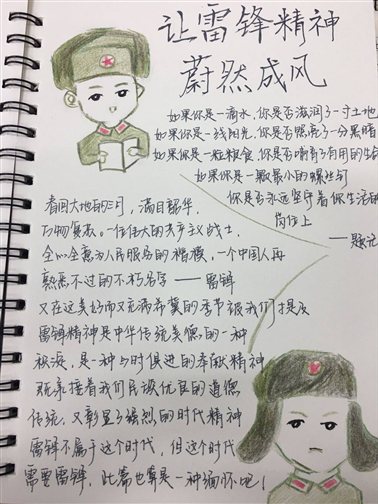 让雷锋精神
蔚然成风
如果你是一滴水，你是否滋润了一寸土地
如果你是一线阳光，你是否照亮了一分黑暗
如果你是一粒粮食，你是否哺育了有用的生命
如果你是一颗最小的螺丝钉
你是否永远坚守着你生活的
岗位上
——题记
春回大地的三月，满目韶华，
万物复苏。一位伟大的共产主义战士，
全心全意为人民服务的楷模，一个中国人再
熟悉不过的不朽名字——雷锋
又在这美好而又充满希冀的季节被我们提及
雷锋精神是中华传统美德的一种
积淀，是一种与时俱进的奉献精神
既承接着我们民族优良的道德
传统，又彰显了强烈的时代精神
雷锋不属于这个时代，但这个时代
需要雷锋，此篇也算是一种缅怀吧！